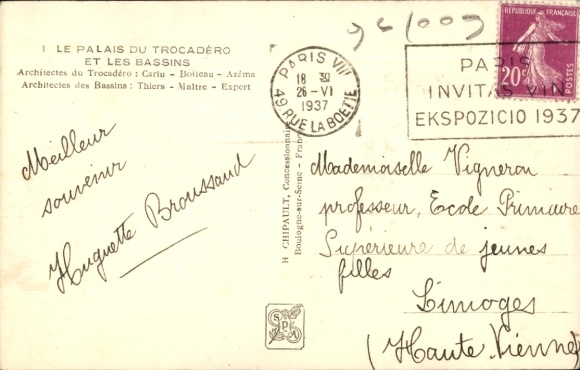 9c 1003
1 LE PALAIS DU TROCADÉRO
ET LES BASSINS
Architectes du Trocadéro : Carlu - Boileau - Azéma
Architectes des Bassins : Thiers - Maître - Expert
PARIS VIII
18 30
26 - VI
1937
49 RUE LA BOETIE
PARIS
INVITAS VIN
EKSPOZICIO 1937
RÉPUBLIQUE FRANÇAISE
20c
POSTES
Meilleur
souvenir
Huguette Broussaud
H CHIPAULT, Concessionnaire
Boulogne-sur-Seine - France
SPA
Mademoiselle Vigneron
professeur, École Primaire
Supérieure de jeunes
filles
Limoges
(Haute-Vienne)